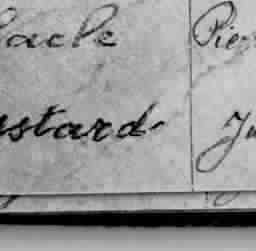 acle Pie
stard Ju